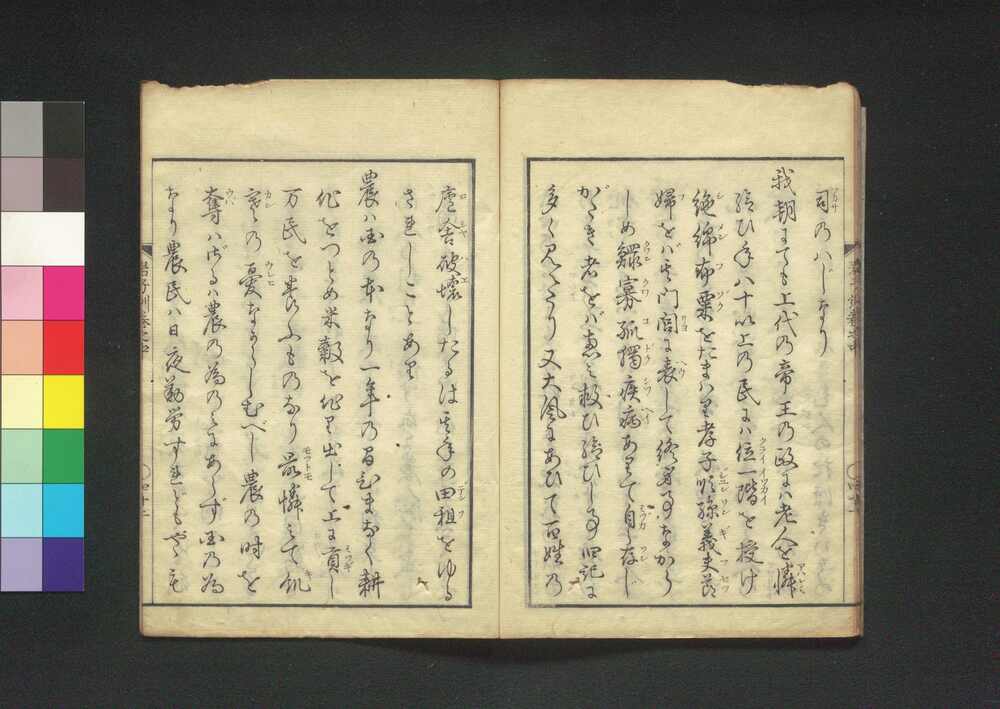 司乃はじなり
我朝にても上代乃帝王乃政には老人を憐
給ひ年八十以上乃民には位一階を授け
絁綿布粟をたまはり孝子順孫義夫節
婦をば其門閭に表して終身事なから
しめ鰥寡孤獨疾病ありて自ら存じ
がたき者をば恵み救ひ給ひし事旧記に
多く見えたり又大風にあひて百姓乃
廬舎破壊したるは其年の田租をゆる
されしことあり
農は国乃本なり一年乃間ひまなく耕
作をつとめ米穀を作り出して上に貢し
万民を養ふもの也最憐みて飢
寒乃憂なからしむべし農乃時を
奪はざるは農の為のみにあらず国乃為
なり農民は日夜勤労すれどもやゝも